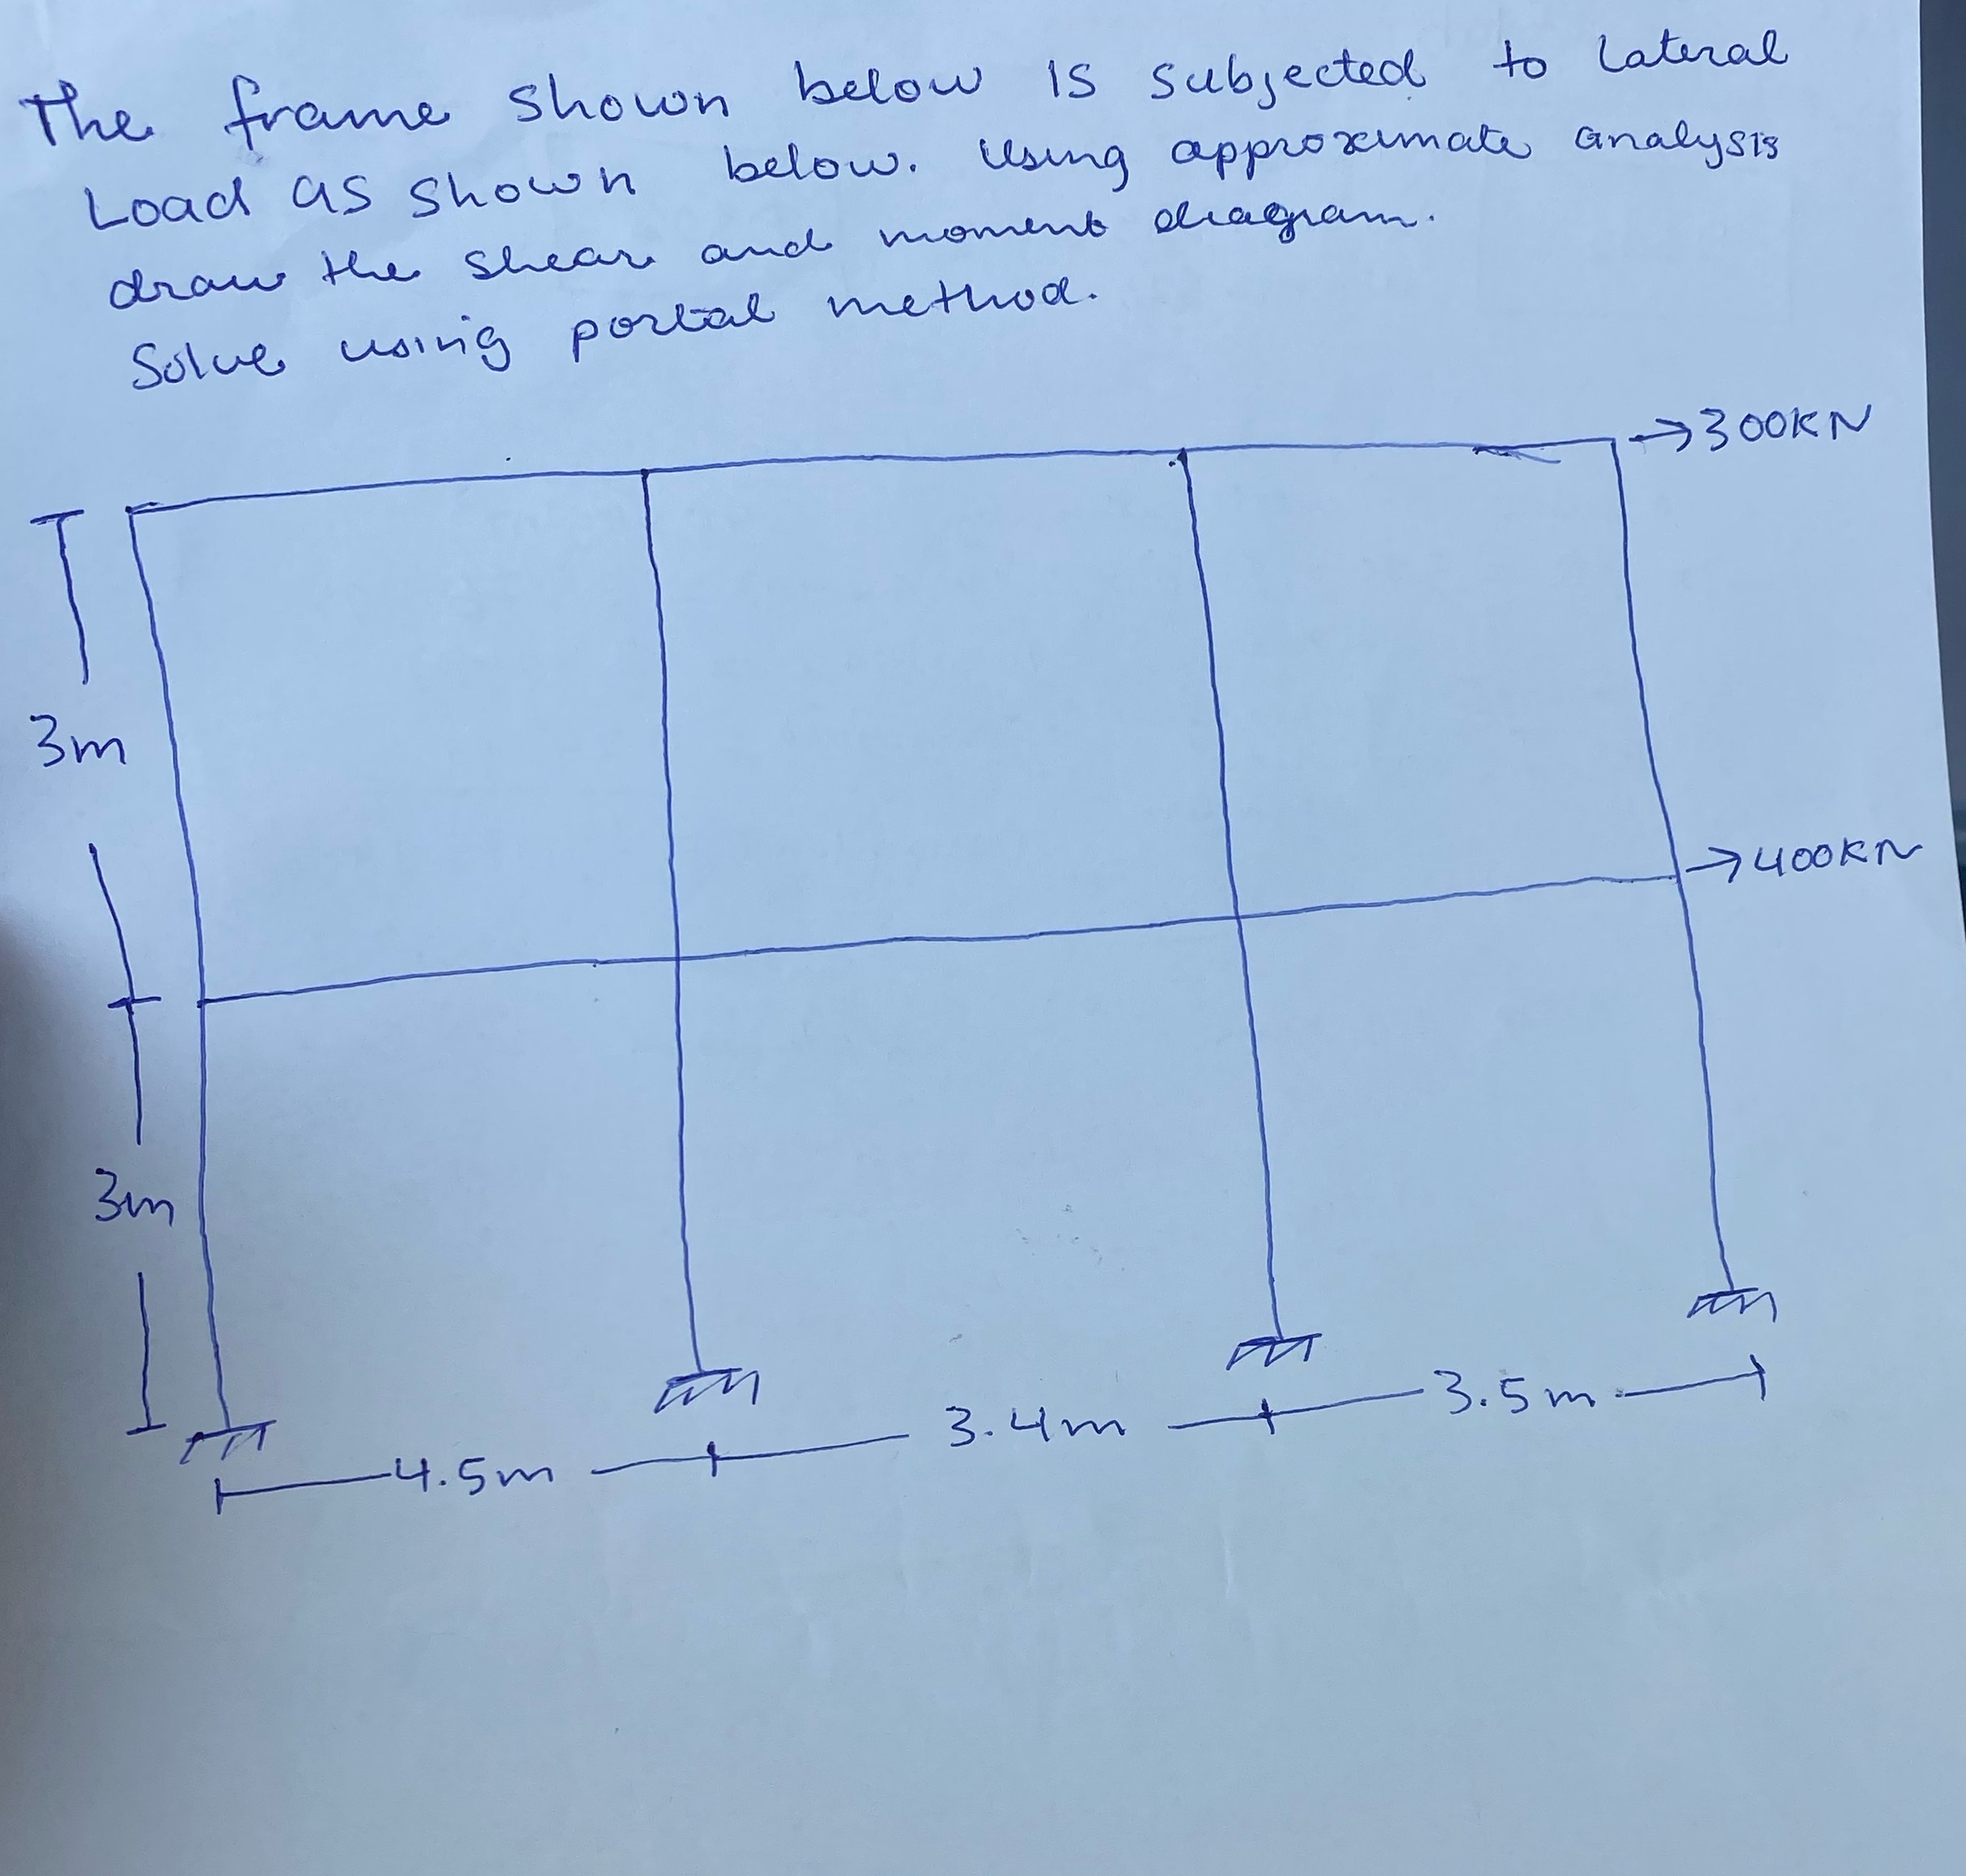 The frame shown below is subjected to lateral
Load as shown below. Using approximate analysis
draw the shear and moment diagram.
Solve using portal method.
→300KN
3m
→400KN
3m
4.5m
3.4m
3.5m